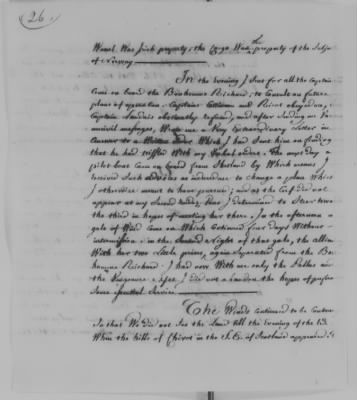 26.
Vessel was Irish property, the Cargo was the property of the Subjects
of Norway
In the evening I Sent for all the Captains
Come on board the Bonhomme Richard, to Consult on future
plans of operation. Captains Cottineau and Ricot obeyed me,
Captain Landais obstinately refused, and after Sending me
messages, Wrote me a Very Extraordinary Letter in
Answer to a Written order Which I had Sent him on finding
that he had trifled With my Verbal orders. The next day a
pilot boat Came on board from Shetland by Which means I
received Such advices as induced me to change a plan Which
I otherwise meant to have pursued; and as the Cerf did not
appear at my Second Rendez Vous, I determined to Steer towards
the third in hopes of meeting her there. In the afternoon a
gale of Wind Came on Which Continued four days Without
intermission. in the Second night of that gale, the Alliance
With her two little prizes, again Separated from the Bon
homme Richard. I had now With me only the Pallas and
the Vengeance, yet I did not abandon the hopes of performing
Some Essential Service
The Winds continued to be Contrary
So that We did not See the Land till the Evening of the
When the hills of Cheviot in the S.E. of Scotland appeared